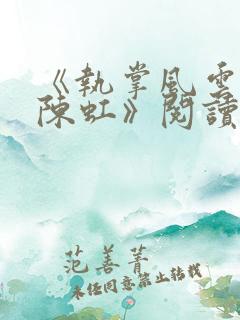 《執掌風雲
陳虹》閱讀
范善菁
未經同意禁止转载